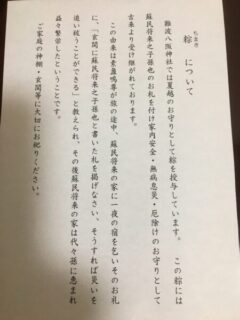 ちまき
粽 について
難波八阪神社では夏越のお守りとして粽を授与しています。 この粽には
蘇民将来之子孫也のお札を付け家内安全・無病息災・厄除けのお守りとして
古来より受け継がれております。
この由来は素盞鳴尊が旅の途中、蘇民将来の家に一夜の宿を乞いそのお礼
に、「玄関に蘇民将来之子孫也と書いた札を掲げなさい、そうすれば災いを
追い祓うことができる」と教えられ、その後蘇民将来の家は代々子孫に恵まれ
益々繁栄したということです。
ご家庭の神棚・玄関等に大切にお祀りください。